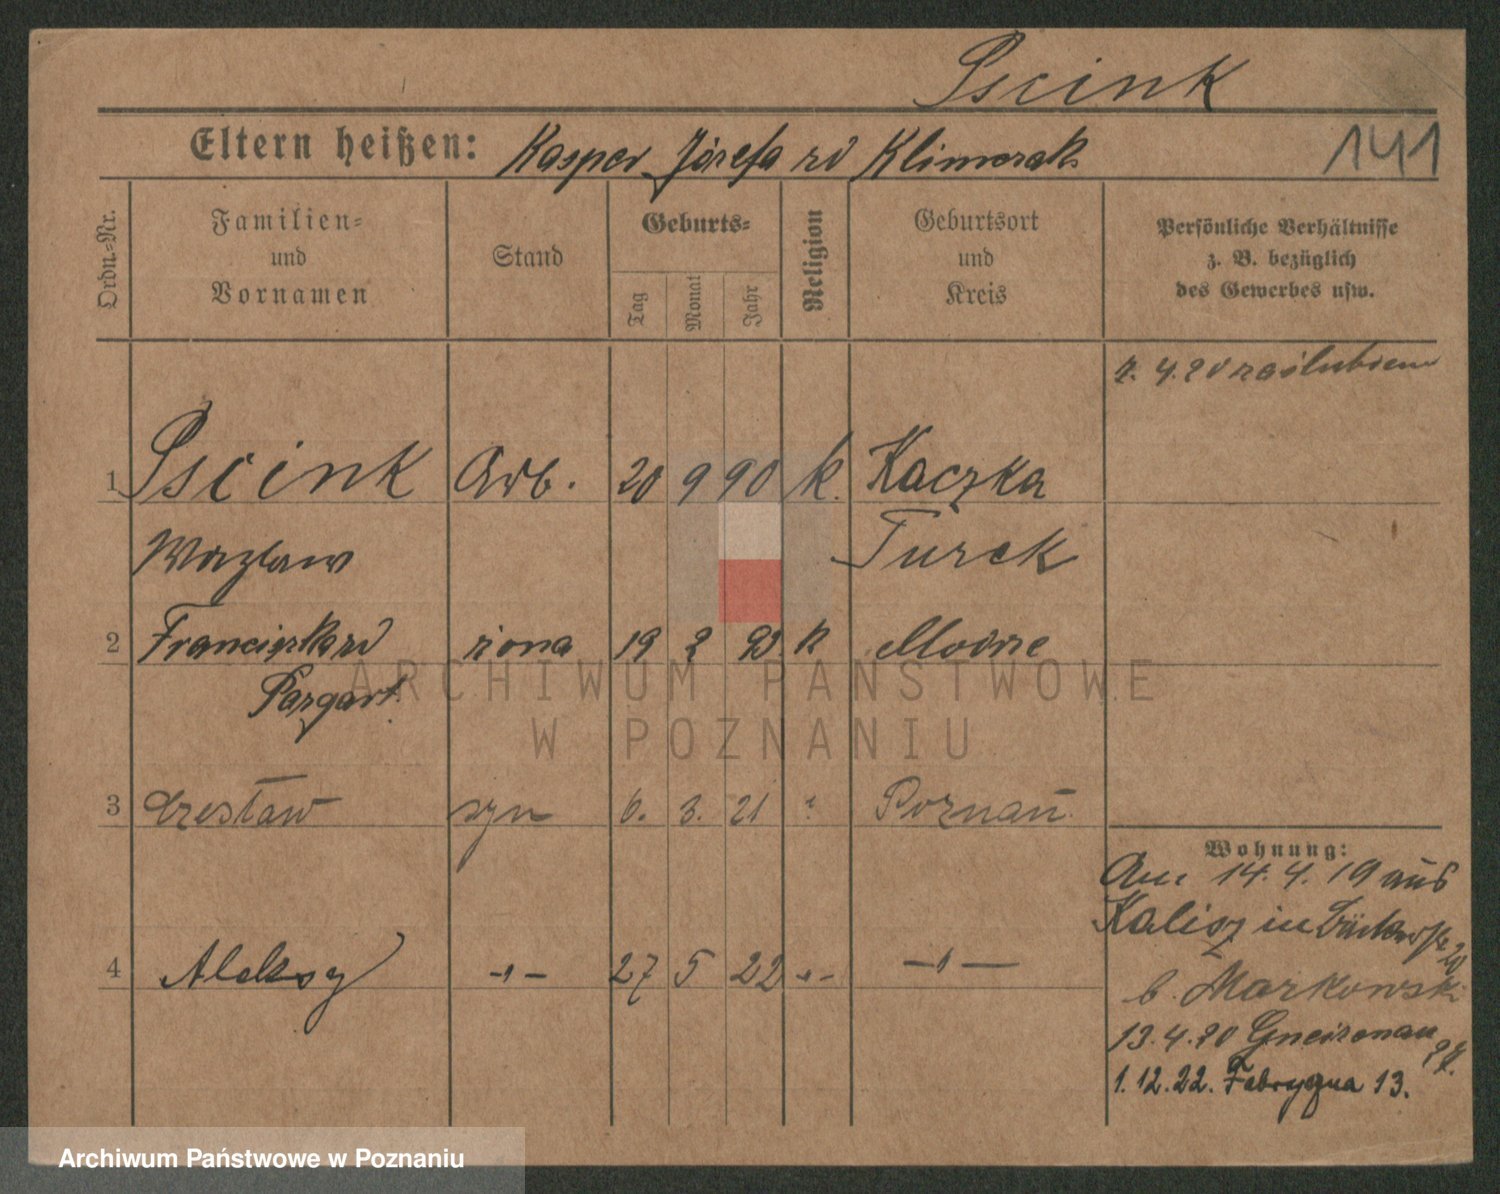 Pscink
Eltern heißen: Kasper Józefa zd Klimczak
141
Ordn.-Nr.
Familien- und Vornamen
Stand
Geburts-
Tag
Monat
Jahr
Religion
Geburtsort und Kreis
Persönliche Verhältnisse
z. B. bezüglich
des Gewerbes usw.
4.20
1 Pscink Arb. 20 9 90 k. Kaczka
Wazlaw Turek
2 19 2 k Modrze
3 Czesław syn 6. 3. 21 " Poznań
4 Aleksy -"- 27 5 22 -"- -"-
Wohnung:
Am 14.4.19 aus
Kalisz in
b. Markowski
13.4.20 Gneisenau
1.12.22. Fabryczna 13.
ARCHIWUM PAŃSTWOWE
W POZNANIU
Archiwum Państwowe w Poznaniu